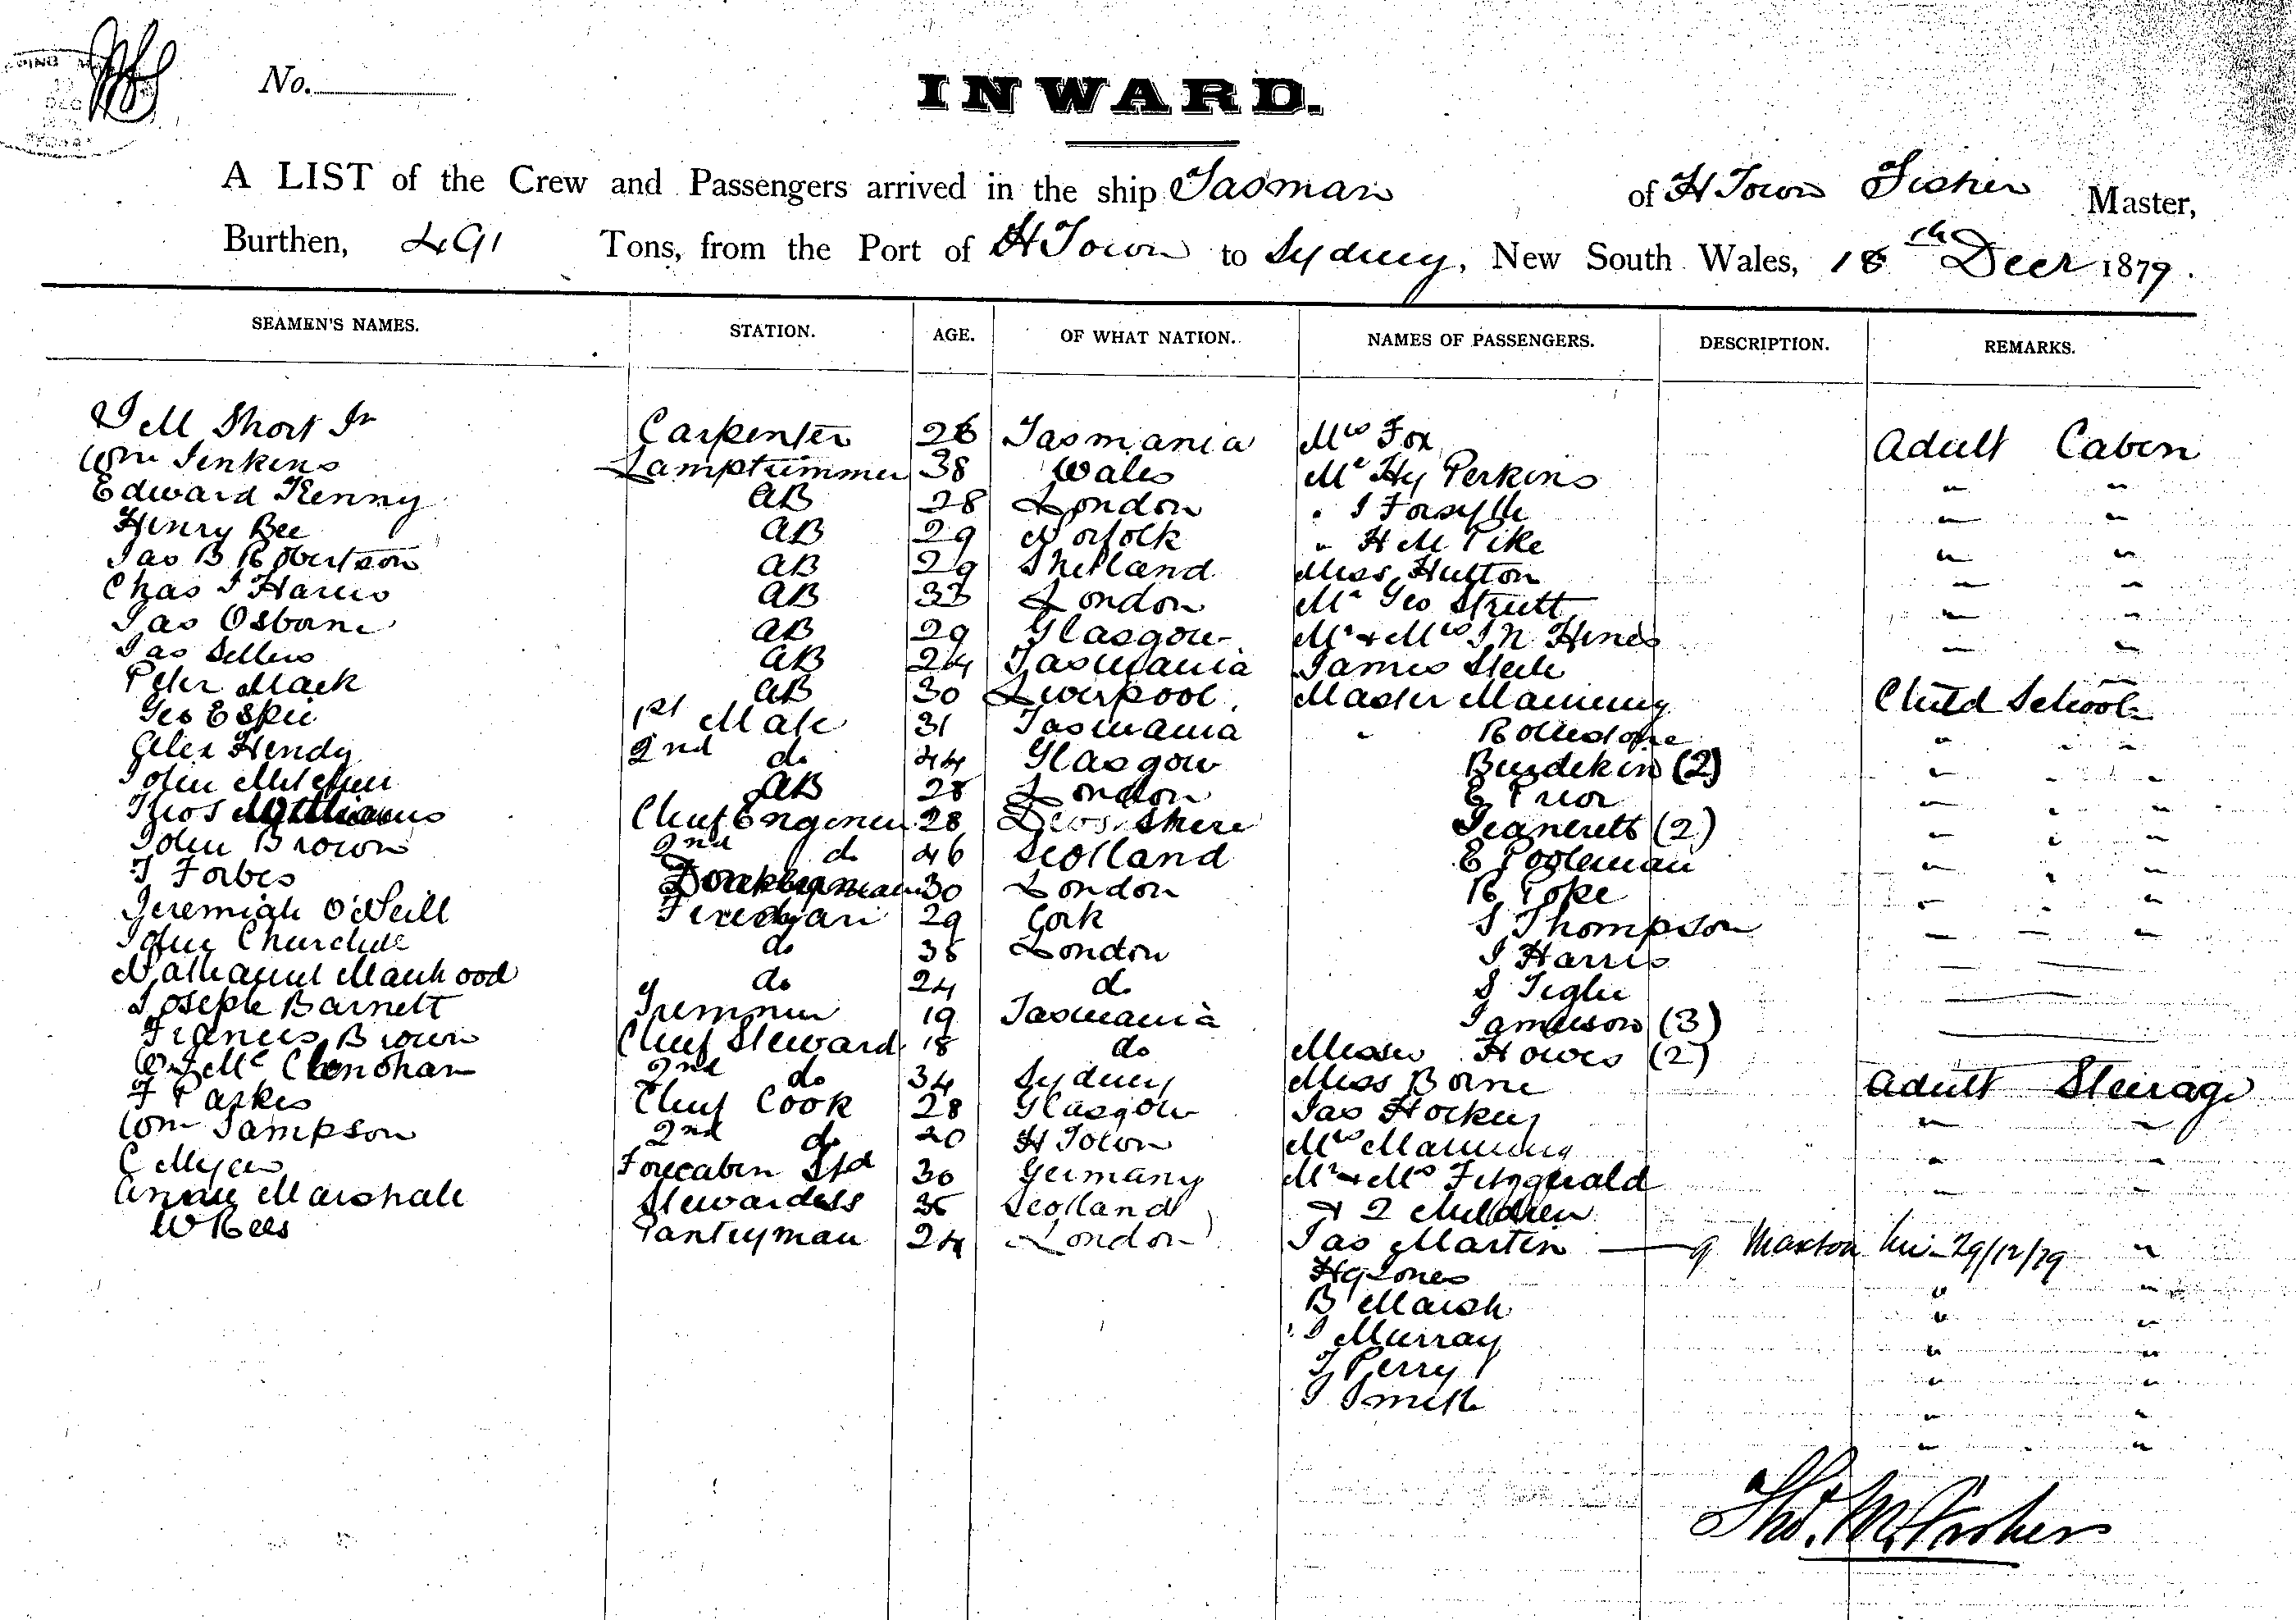 No.
INWARD.
A LIST of the Crew and Passengers arrived in the ship Tasman of H Town Fisher Master,
Burthen, 491 Tons, from the Port of H Town to Sydney, New South Wales, 18th Decr 1879.
SEAMEN'S NAMES. STATION. AGE. OF WHAT NATION. NAMES OF PASSENGERS. DESCRIPTION. REMARKS.
Short Jr Carpenter 26 Tasmania Mrs Fox Adult Cabin
Wm Jenkins Lamptrimmer 38 Wales Mr Hy Perkins " "
Edward Kenny AB 28 London " J Forsyth " "
Henry Bee AB 29 Norfolk " H M Pike " "
Jas B Robertson AB 29 Shetland Miss Hutton " "
Chas J Harris AB 33 London Mr Geo Strutt " "
Jas Osborne AB 29 Glasgow Mr & Mrs J N Hines " "
Jas Sellers AB 24 Tasmania James Steele "
Peter Mack AB 30 Liverpool Master Manning Child School
Geo Espie 1st Mate 31 Tasmania " Rolledstone " " "
Alex Hendy 2nd do 44 Glasgow Burdekin (2) " " "
John Mitchell AB 28 London E Prior " " "
Thos Williams Chief Engineer 28 Devonshire Jeanerett (2) " " "
John Brown 2nd do 46 Scotland E Pogleman " " "
J Forbes Donkeyman 30 London R Poke " " "
Jeremiah O'Neill Fireman 29 Cork S Thompson
John Churchill do 35 London J Harris
Nathaniel Manhood do 24 do S Teglie
Joseph Barnett Trimmer 19 Tasmania Jameson (3)
Francis Brown Chief Steward 18 do Misses Howes (2)
Mc Clenohan 2nd do 34 Sydney Miss Borne Adult Steerage
F Parkes Chief Cook 28 Glasgow Jas Hockey " "
Wm Sampson 2nd do 20 H Town Mrs Manning " "
C Myers Forecabin Std 30 Germany Mr & Mrs Fitzgerald " "
Annie Marshall Stewardess 35 Scotland & 2 children
W Rees Pantryman 24 London Jas Martin 29/12/79 "
Hy Jones " "
B Marsh " "
J Murray " "
J Perry " "
J Smith " "
Thos. M. Fisher